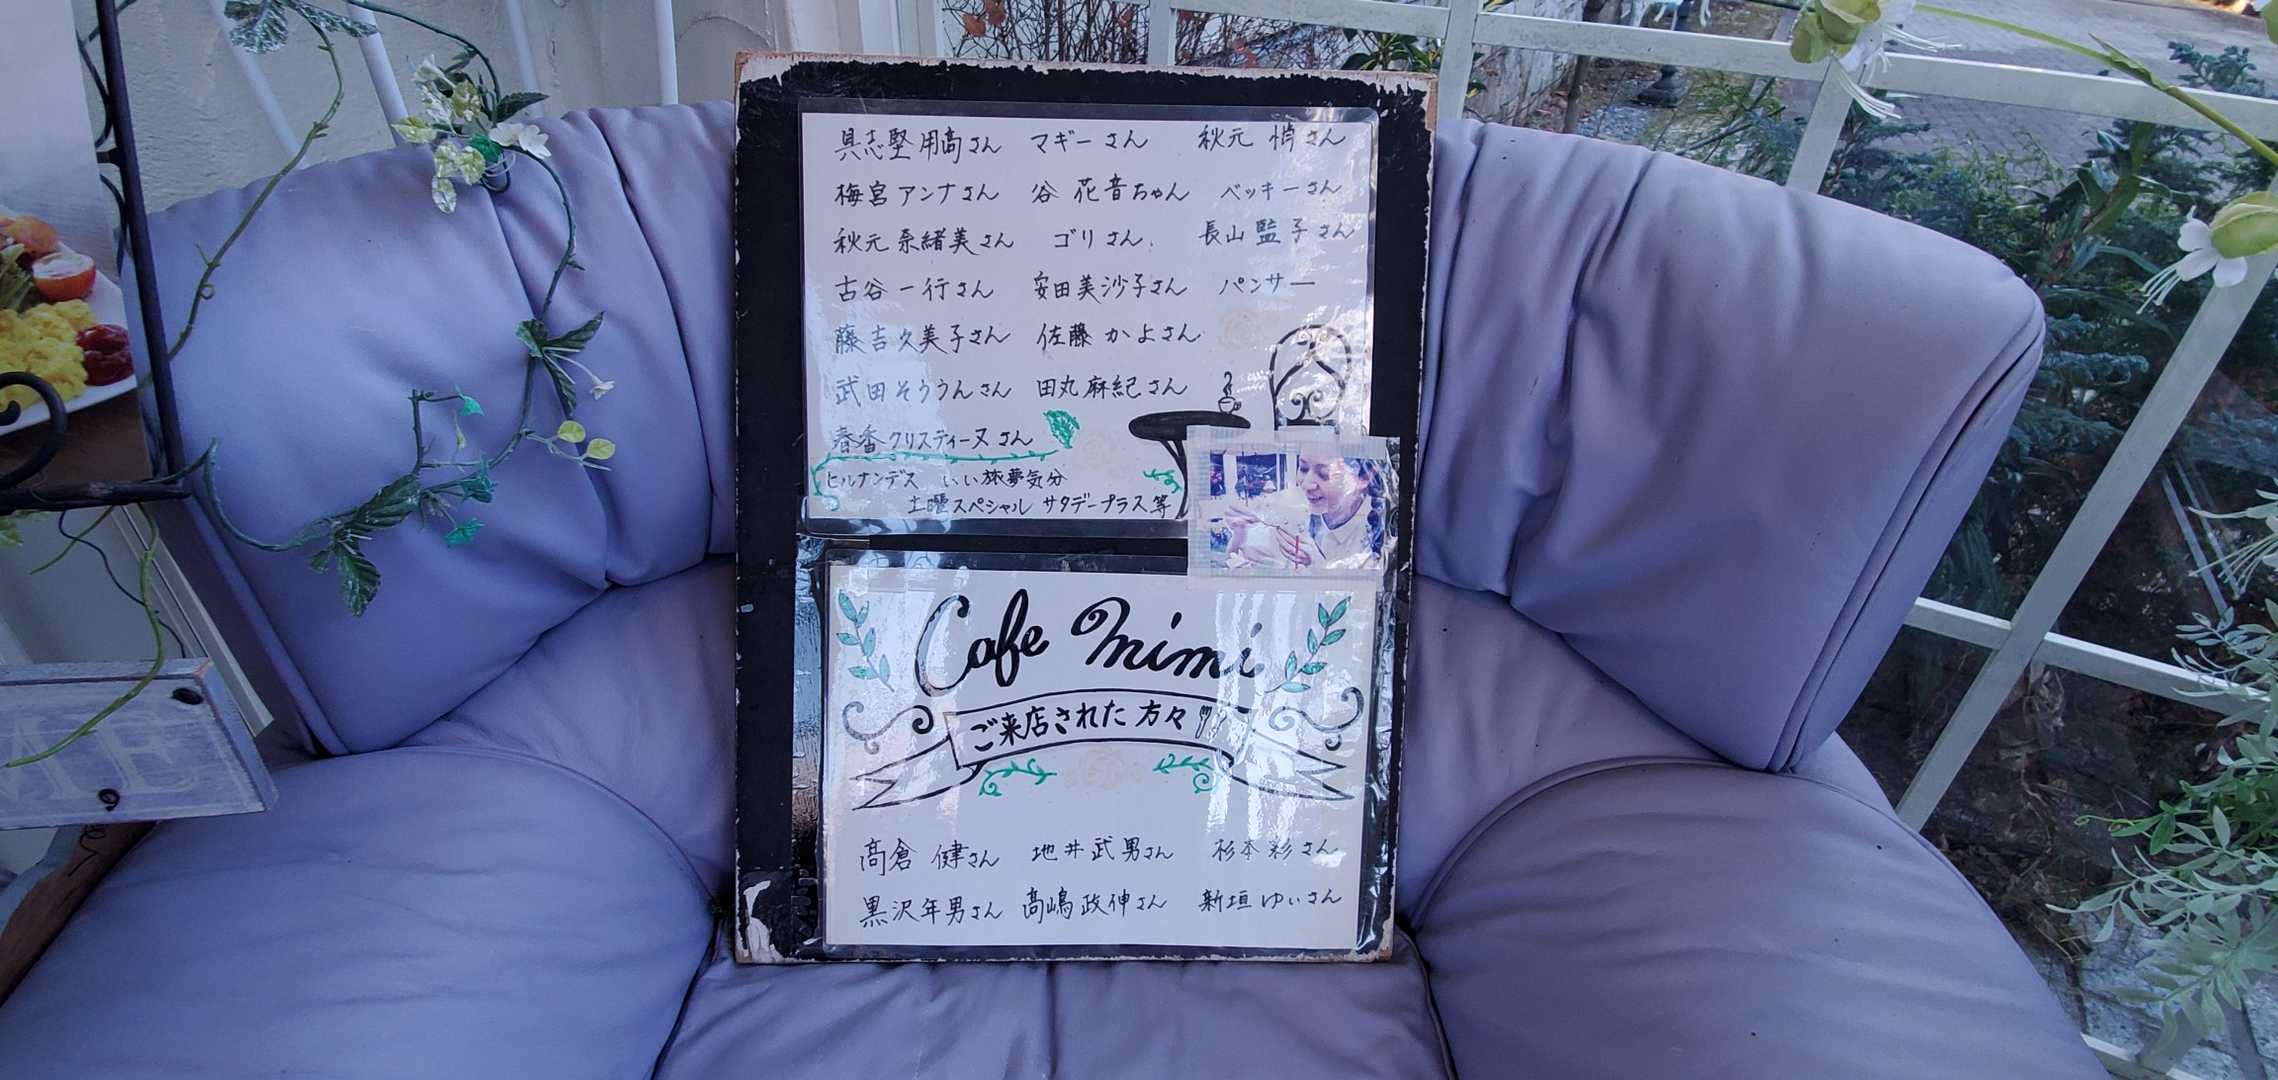 具志堅用高さん マギーさん 秋元 梢さん
梅宮アンナさん 谷 花音ちゃん ベッキーさん
秋元奈緒美さん ゴリさん 長山藍子さん
古谷一行さん 安田美沙子さん パンサー
藤吉久美子さん 佐藤かよさん
武田そううんさん 田丸麻紀さん
春香クリスティーヌさん
ヒルナンデス いい旅夢気分
土曜スペシャル サタデープラス等
Cafe mimi
ご来店された方々
高倉 健さん 地井武男さん 杉本彩さん
黒沢年男さん 高嶋政伸さん 新垣ゆいさん
ME